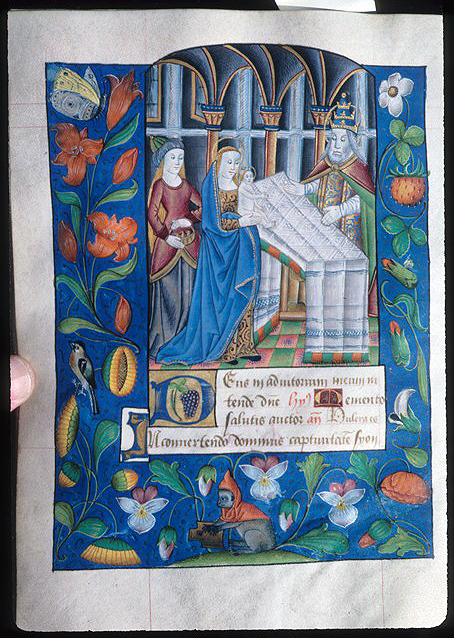 Deus in adiutorium meum in
tende dne hy' Memento
salutis auctor añ Pulcra es
In convertendo dominus captiuitatē syon